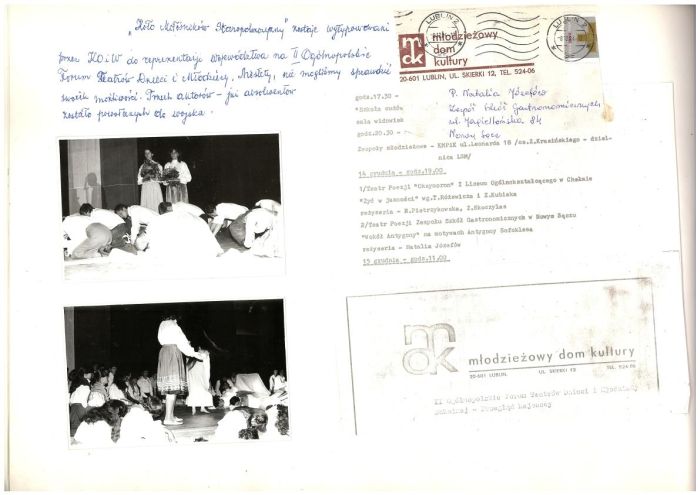 „Koło Miłośników Staropolszczyzny" zostaje wytypowane
przez KO i W do reprezentacji województwa na II Ogólnopolskie
Forum Teatrów Dzieci i Młodzieży. Niestety, nie mogliśmy sprawdzić
swoich możliwości. Trzech aktorów – już absolwentów
zostało powołanych do wojska.
LUBLIN 2
mdk
młodzieżowy
dom
kultury
20-601 LUBLIN, UL. SKIERKI 12, TEL. 524-06
P. Natalia Józefów
Zespół Szkół Gastronomicznych
ul. Jagiellońska 84
Nowy Sącz
godz.17.30 -
sala widowisk
godz.20.30 -
Zespoły młodzieżowe - KMPiK ul.Leonarda 18 /os.Z.Krasińskiego - dziel-
nica LSM/
14 grudnia - godz.19.00
1/Teatr Poezji "Oxymoron" I Liceum Ogólnokształcącego w Chełmie
"Żyd w jasności" wg.T.Różewicza i Z.Kubiaka
reżyseria - M.Pietrzykowska, Z.Skoczylas
2/Teatr Poezji Zespołu Szkół Gastronomicznych w Nowym Sączu
"Wokół Antygony" na motywach Antygony Sofoklesa
reżyseria - Natalia Józefów
15 grudnia - godz.11.00
mdk
młodzieżowy dom kultury
20-601 LUBLIN, UL. SKIERKI 12, TEL. 524-06
II Ogólnopolskie Forum Teatrów Dzieci i Młodzieży
Szkolnej - Przegląd Krajowy